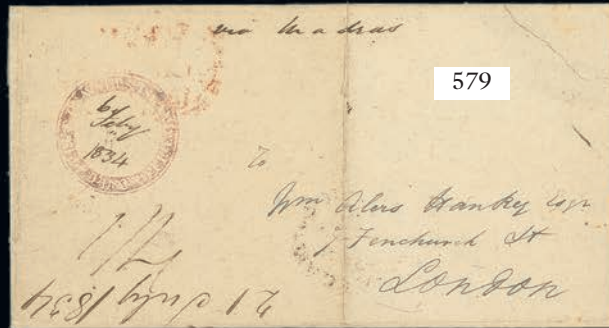 via Madras
579
Feby
1834
To
Wm Alers Hankey Esqr
7 Fenchurch St
London
21 July 1834